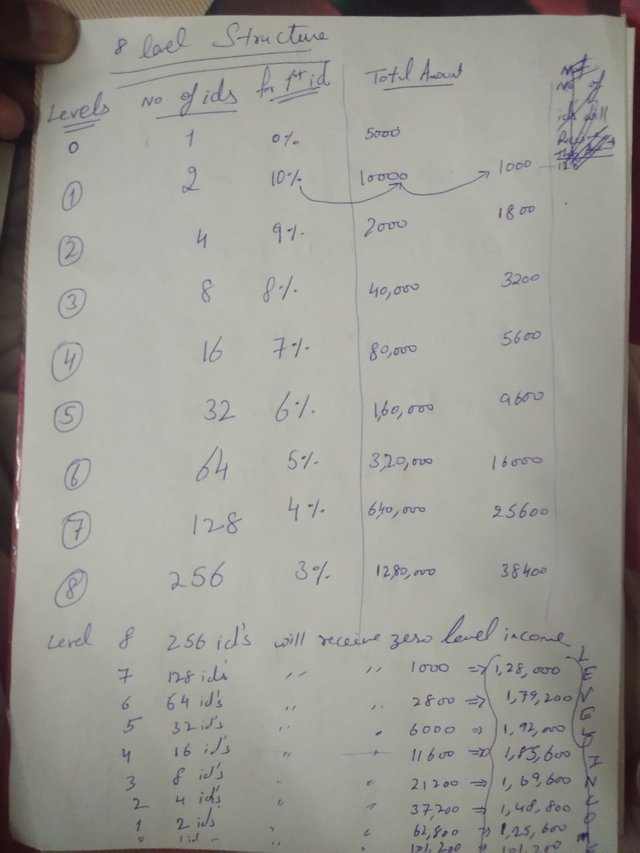 8 lavel Structure
Levels No of ids for 1st id Total Amount No of ids will
0 1 0% 5000
1 2 10% 10000 1000 128
2 4 9% 2000 1800
3 8 8% 40,000 3200
4 16 7% 80,000 5600
5 32 6% 1,60,000 9600
6 64 5% 3,20,000 16000
7 128 4% 640,000 25600
8 256 3% 1280,000 38400
Level 8 256 id's will receive zero level income
7 128 id's ,, ,, 1000 => 1,28,000
6 64 id's ,, ,, 2800 => 1,79,200
5 32 id's ,, ,, 6000 => 1,92,000
4 16 id's ,, ,, 11600 => 1,85,600
3 8 id's ,, ,, 21,200 => 1,69,600
2 4 id's ,, ,, 37,200 => 1,48,800
1 2 id's ,, ,, 62,800 => 1,25,600
101,200 101,200